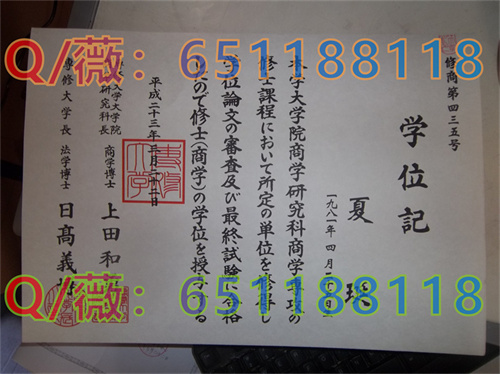 Q/薇: 651188118
修商第四三五号
学位記
夏
一九八一年四月
本学大学院商学研究科商学専攻の
修士課程において所定の単位を修得し
学位論文の審査及び最終試験に合格
したので修士(商学)の学位を授与する
平成二十三年三月二十二日
大学大学院
研究科長 商学博士 上田和
専修大学長 法学博士 日髙義
Q/薇: 651188118